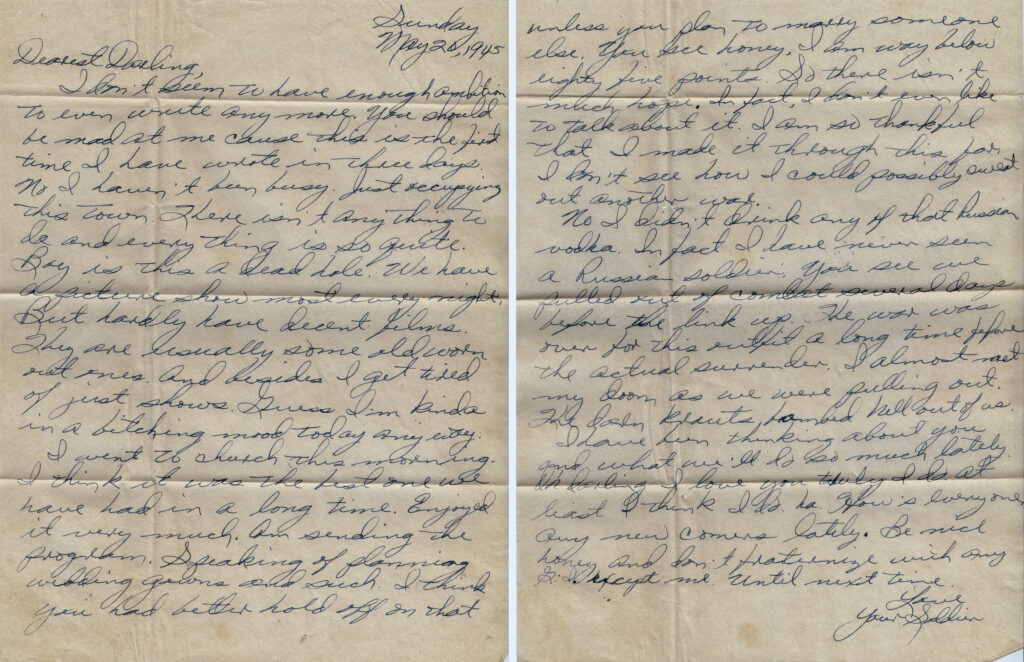 Sunday
May 20, 1945
Dearest Darling,
I don't seem to have enough ambition
to even write any more. You should
be mad at me cause this is the first
time I have wrote in three days.
No I haven't been busy. Just occupying
this town. There isn't anything to
do and everything is so quite.
Boy is this a dead hole. We have
a picture show most every night.
But hardly have decent films.
They are usually some old worn
out ones. And besides I get tired
of just shows. Guess I'm kinda
in a bitching mood today any way.
I went to church this morning.
I think it was the best one we
have had in a long time. Enjoyed
it very much. Am sending the
program. Speaking of planning
wedding gowns and such. I think
you had better hold off on that
unless you plan to marry someone
else. You see honey, I am way below
eighty five points. So there isn't
much hope. In fact, I don't even like
to talk about it. I am so thankful
that I made it through this far.
I don't see how I could possibly sweat
out another war.
No I didn't drink any of that Russian
vodka. In fact I have never seen
a Russian soldier. You see we
pulled out of combat several days
before the link up. The war was
over for this outfit a long time before
the actual surrender. I almost met
my doom as we were pulling out.
The Krauts bombed hell out of us.
I have been thinking about you
and what we'll do so much lately.
darling I love you truly I do at
least I think I do. ha. How's everyone
any new comers lately. Be nice
honey and don't fraternize with any
except me. Until next time.
Love
Your Soldier